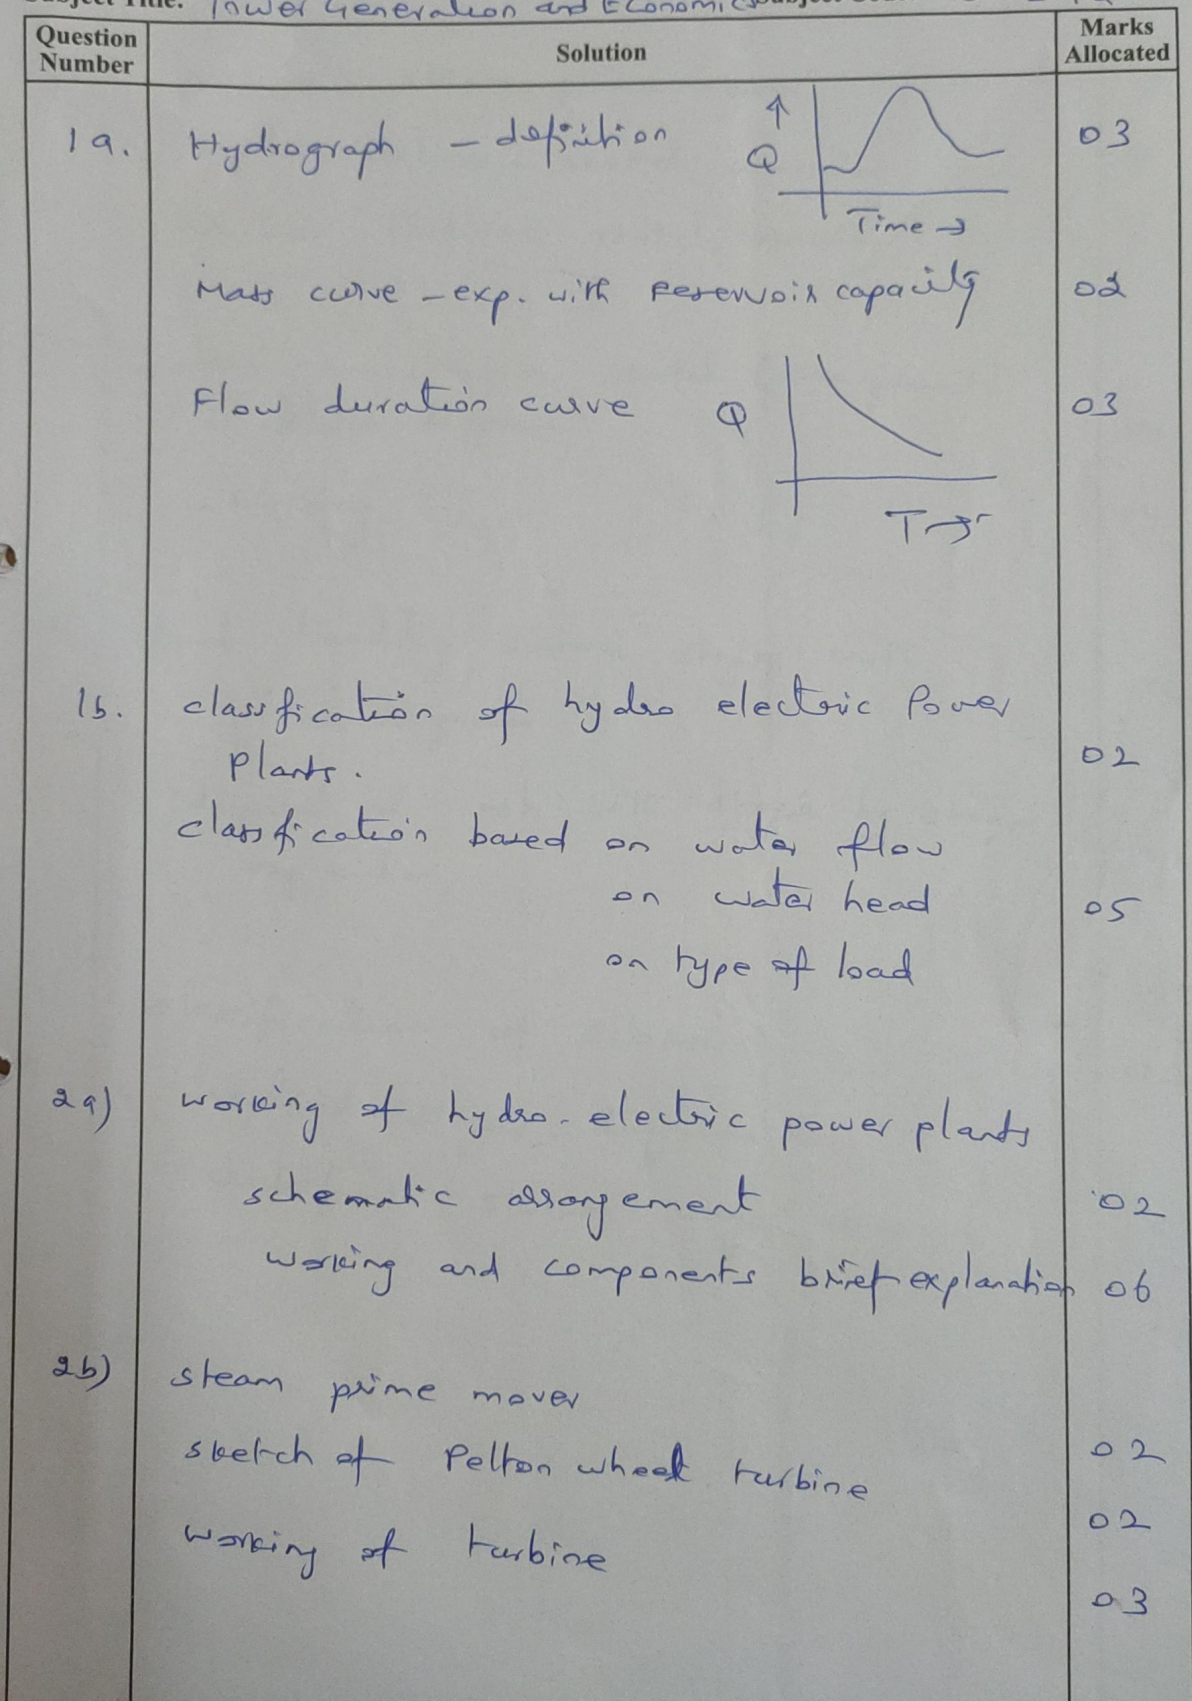 Power Generation and Economics
Question Number
Solution
Marks Allocated
1a.
Hydrograph - definition
↑
Q
Time →
03
Mass curve - exp. with Reservoir capacity
02
Flow duration curve
Q
T →
03
1b.
classfication of hydro electric Power
Plants.
02
classfication based on water flow
on water head
05
on type of load
2a)
working of hydro-electric power plants
schematic arrangement
02
working and components brief explanation
06
2b)
steam prime mover
sketch of Pelton wheel turbine
02
02
working of turbine
03